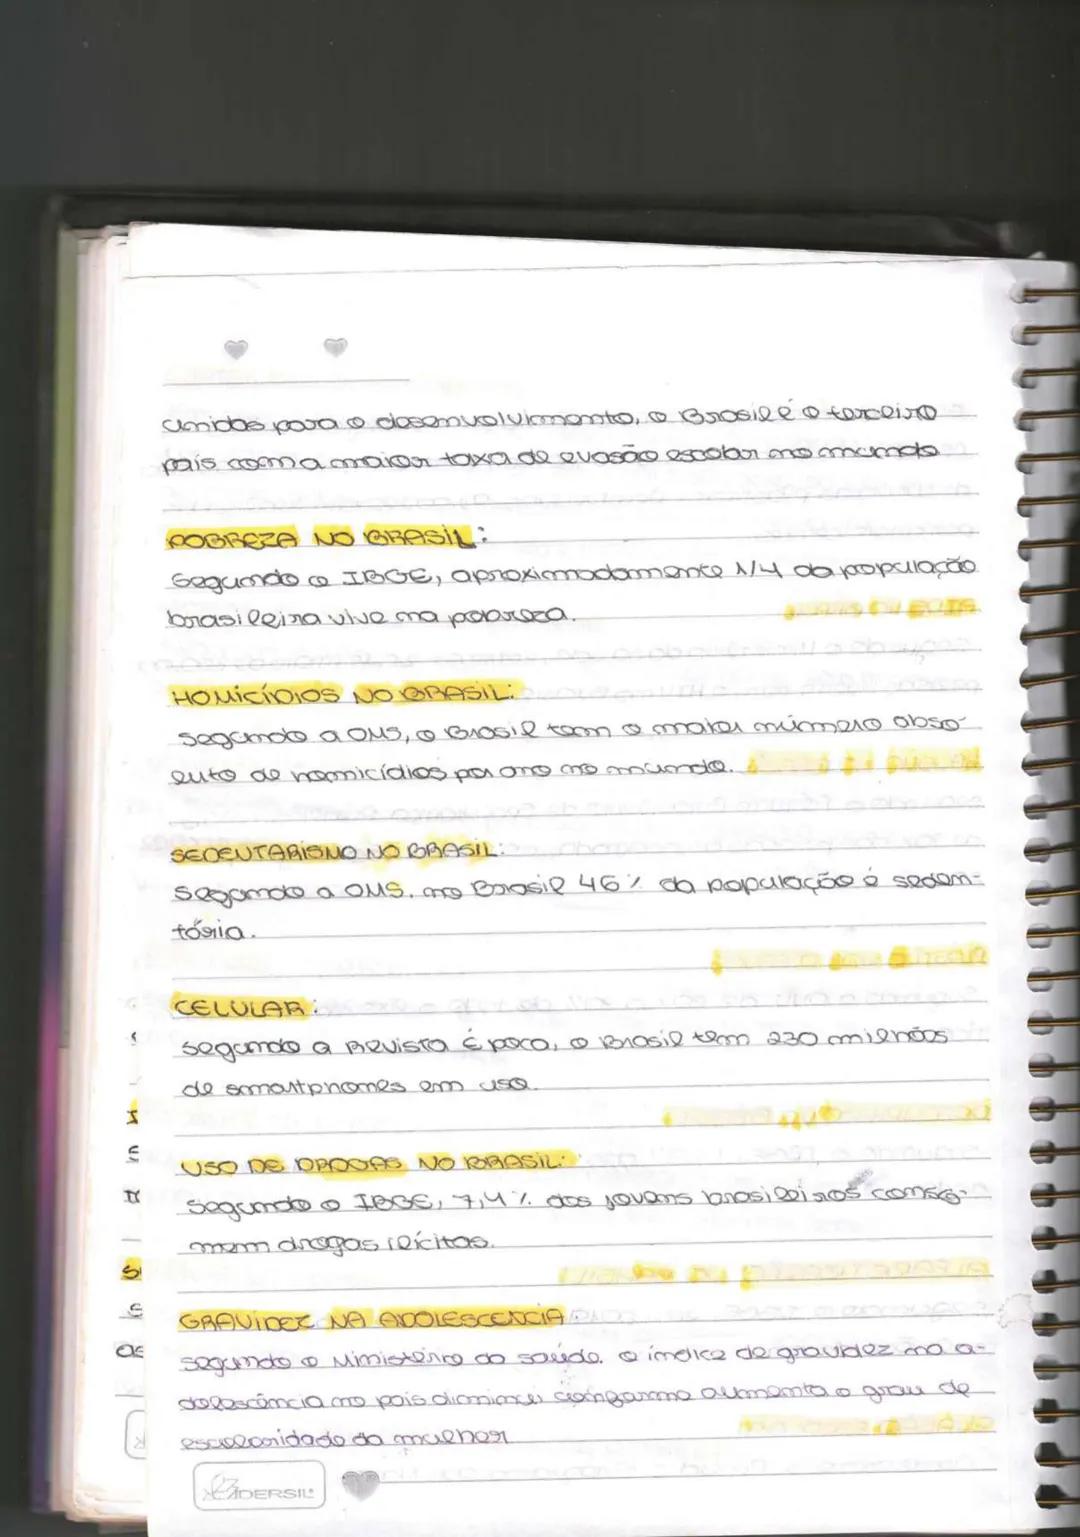 unidas para o desenvolvimento, o Brasil é o terceiro
país com a maior taxa de evasão escolar no mundo
POBREZA NO BRASIL:
Segundo o IBGE, aproximadamente 1/4 da população
brasileira vive na pobreza.
HOMICÍDIOS NO BRASIL:
segundo a OMS, o Brasil tem o maior número abso-
luto de homicídios por ano no mundo.
SEDENTARISMO NO BRASIL:
segundo a OMS, no Brasil 46% da população é seden-
tária.
CELULAR:
segundo a Revista Época, o Brasil tem 230 milhões
de smartphones em uso.
USO DE DROGAS NO BRASIL:
segundo o IBGE, 7,4% dos jovens brasileiros conso-
mem drogas ilícitas.
GRAVIDEZ NA ADOLESCENCIA
segundo o Ministério da saúde, o índice de gravidez na a-
dolescência no país diminui conforme aumenta o grau de
escolaridade da mulher
CADERSIL